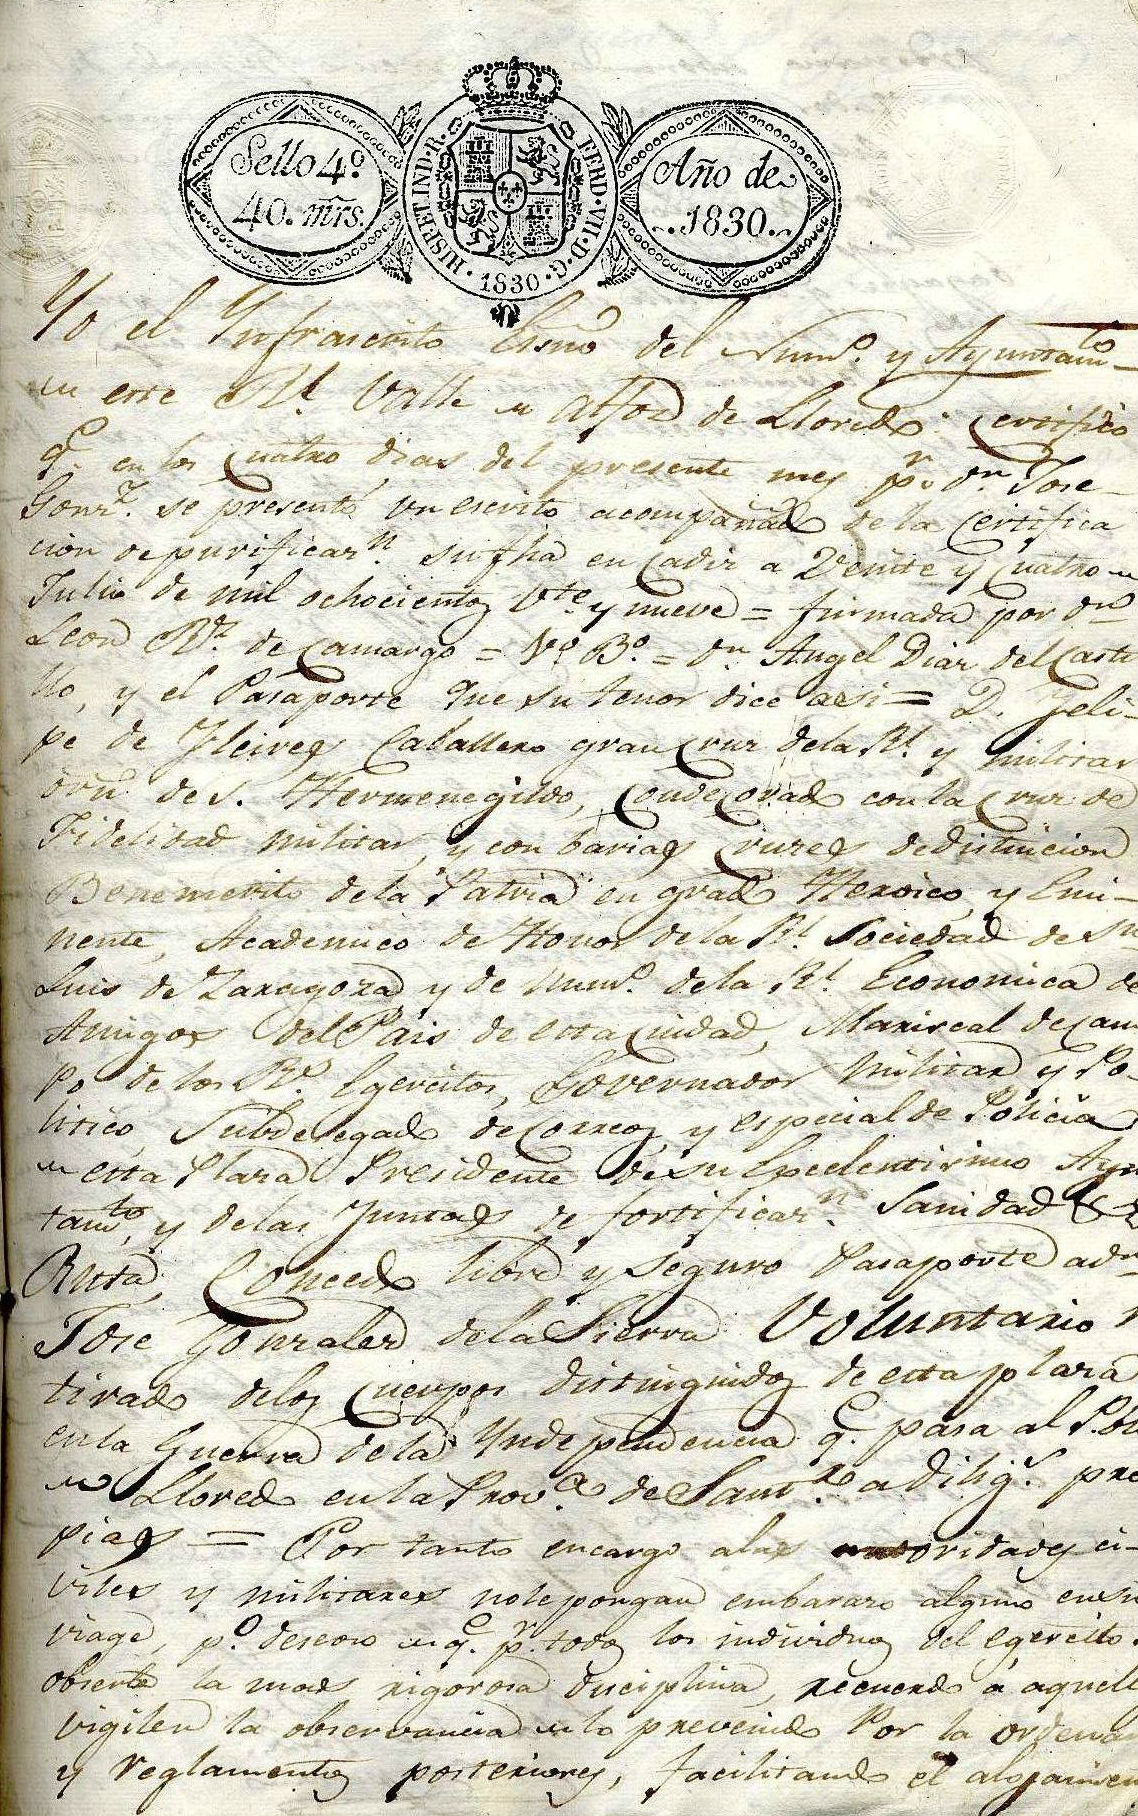 Sello 4º
40. mrs.
HISP. ET IND. R.
FERD. VII. D. G.
1830
Año de
1830.
Yo el Ynfrascrito Esnõ del Numº. y Ayuntamto
en este Rl. Valle de Alfoz de Lloredo: Certifico
qe. en los Cuatro dias del presente mes pr. dn Jose
Gonz. se presentó un escrito acompañado de la Certifica
cion de purificazn. su fha en Cadiz a Veinte y Cuatro de
Julio de mil ochocientos Vte. y nueve = firmada por dn
Leon Rz. de Camargo = Vº Bº. = dn. Angel Diaz del Casti
llo, y el Pasaporte que su tenor dice asi = D. Feli-
pe de Fleires Caballero gran Cruz de la Rl. y militar
orn. de S. Hermenegildo, Condecorado con la Cruz de
Fidelidad militar, y con barias cruzes de distincion
Benemerito de la Patria en grado Heroico y Emi-
nente, Academico de Honor de la Rl. Sociedad de Sn
Luis de Zaragoza y de Numº. de la Rl. Economica de
Amigos del Pais de esta Ciudad, Mariscal de Cam
po de los Rs. Egercitos, Governador Militar y Po-
litico, Subdelegado de Correos y especial de Policia
de esta Plaza Presidente de su Excelentisimo Ayun
tamto, y de las Juntas de fortificazn. Sanidad &a
Rusta, Concedo libre y seguro Pasaporte a dn
Jose Gonzalez de la Sierra Voluntario r
tirado de los Cuerpos distinguidos de esta plaza
en la Guerra de la Yndependencia q. pasa al Pbl
de Lloredo en la Prova. de Santr. a Diligs. pro
pias = Por tanto encargo a las autoridades ci-
viles y militares no le pongan embarazo alguno en su
viage, pº. deseoso de qe. pr. todos los individuos del egercito
observe la mas rigorosa disciplina, recuerdo á aquell
vigilen la observancia de lo prevenido Por la ordena
y reglamentos posteriores, facilitando el alojamien